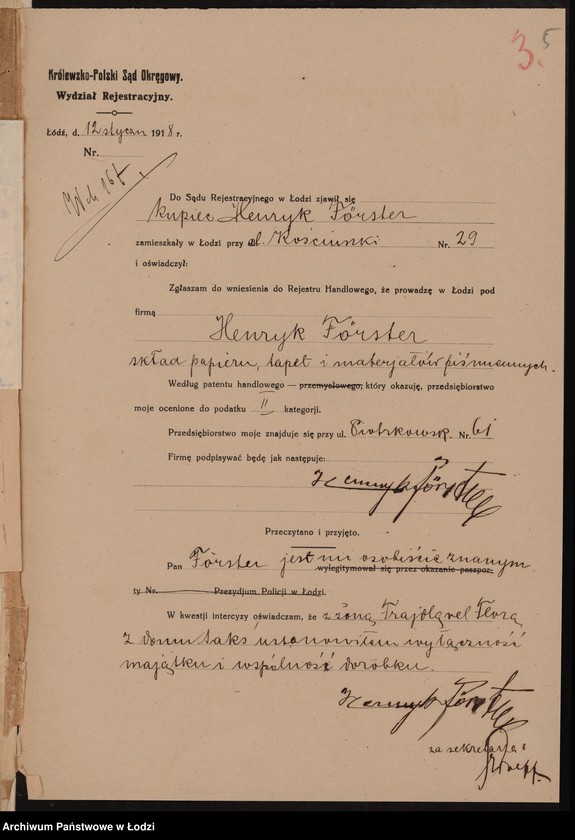 3. 5
Królewsko-Polski Sąd Okręgowy.
Wydział Rejestracyjny.
Łódź, d. 12 styczan 1918 r.
Nr.
Do Sądu Rejestracyjnego w Łodzi zjawił się
kupiec Henryk Förster
zamieszkały w Łodzi przy ul. Kościuszki Nr. 29
i oświadczył:
Zgłaszam do wniesienia do Rejestru Handlowego, że prowadzę w Łodzi pod
firmą
Henryk Förster
skład papieru, tapet i materjałów piśmiennych.
Według patentu handlowego — przemysłowego, który okazuję, przedsiębiorstwo
moje ocenione do podatku II kategorji.
Przedsiębiorstwo moje znajduje się przy ul. Piotrkowsk. Nr. 61
Firmę podpisywać będę jak następuje:
Henryk Förster
Przeczytano i przyjęto.
Pan Förster jest mi osobiście znanym.
wylegitymował się przez okazanie paszpor-
ty Nr. Prezydjum Policji w Łodzi.
W kwestji intercyzy oświadczam, że z żoną Florą
z domu ustanowiłem wyłączność
majątku i wspólność dorobku.
Henryk Förster
za sekretarza:
Archiwum Państwowe w Łodzi